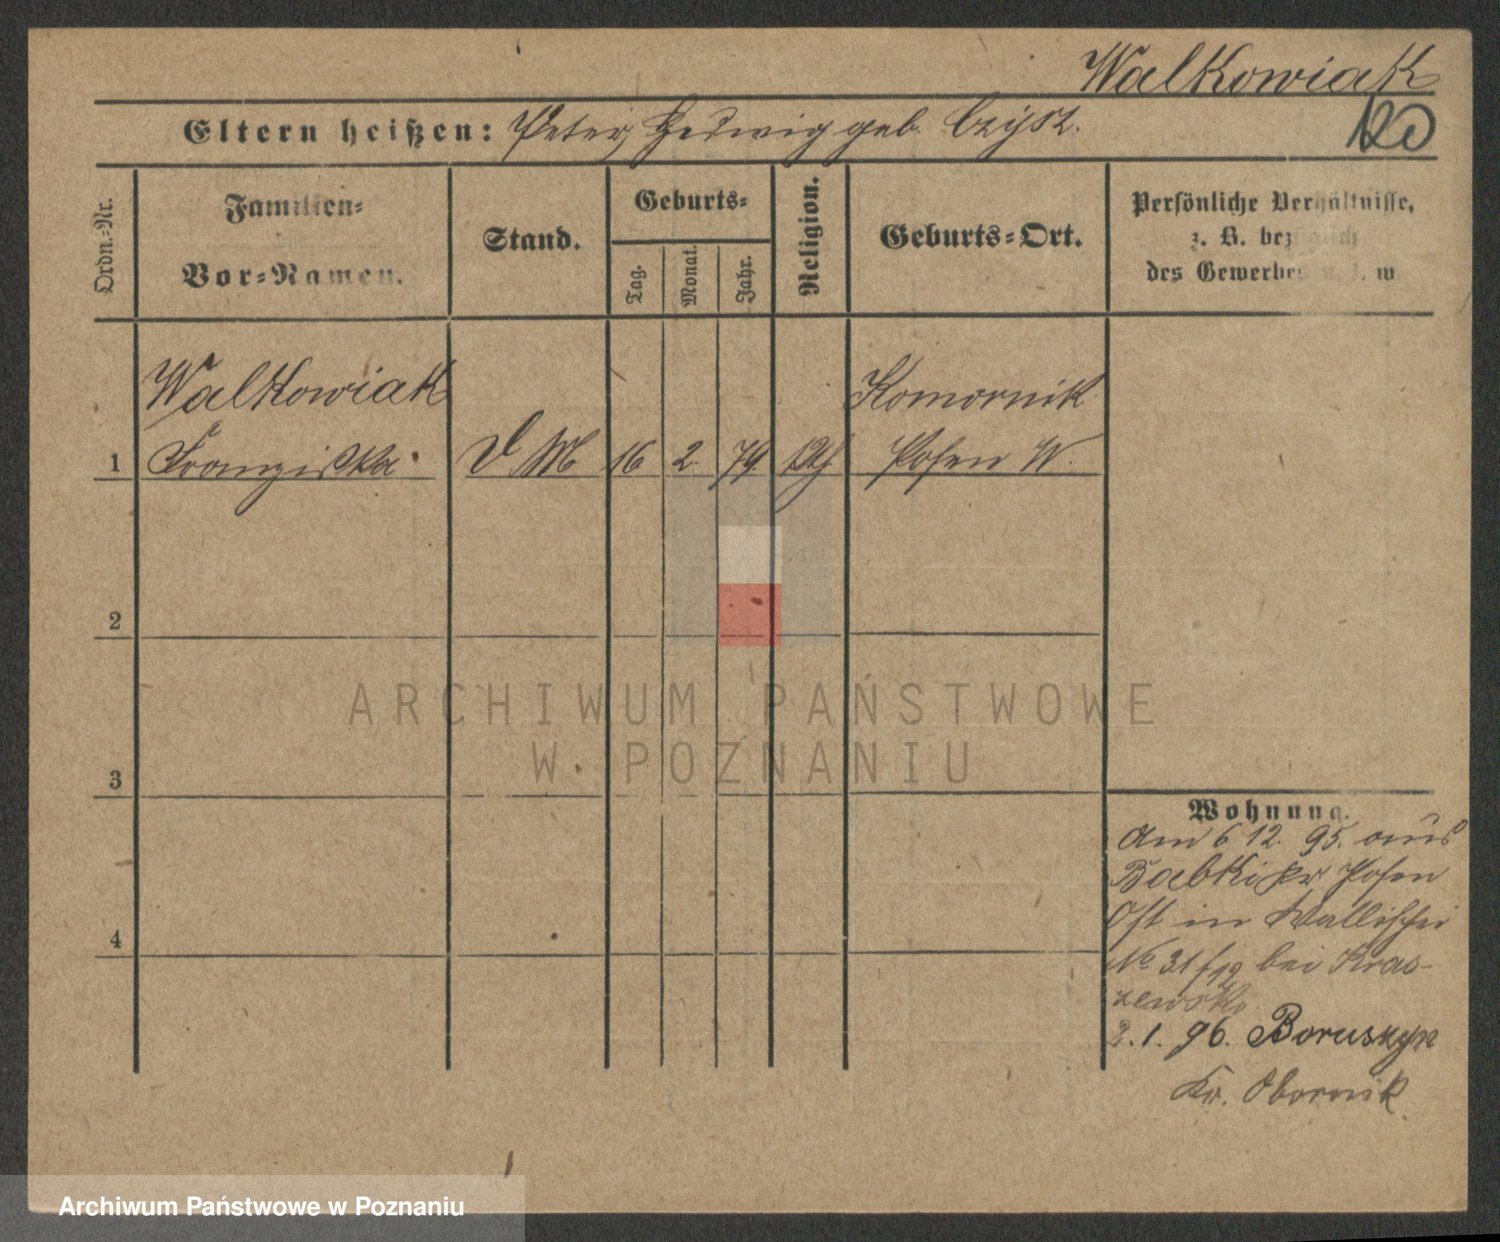 Walkowiak
120
Eltern heißen: Peter, Hedwig geb. Czysz.
Ordn.-Nr.
Familien-
Vor-Namen.
Stand.
Geburts-
Tag.
Monat.
Jahr.
Religion.
Geburts-Ort.
Persönliche Verhältnisse,
z. B. bezüglich
des Gewerbes u. s. w.
Walkowiak
Komornik
1 Franziska D M 16 2. 79 kth Posen W.
2
3
4
Wohnung.
Am 6 12. 95. aus
Babki Kr. Posen
Ost in Wallischei
No 31/12 bei Kras-
zewski
2.1.96. Boruszyn
Kr. Obornik
ARCHIWUM PAŃSTWOWE
W POZNANIU
Archiwum Państwowe w Poznaniu